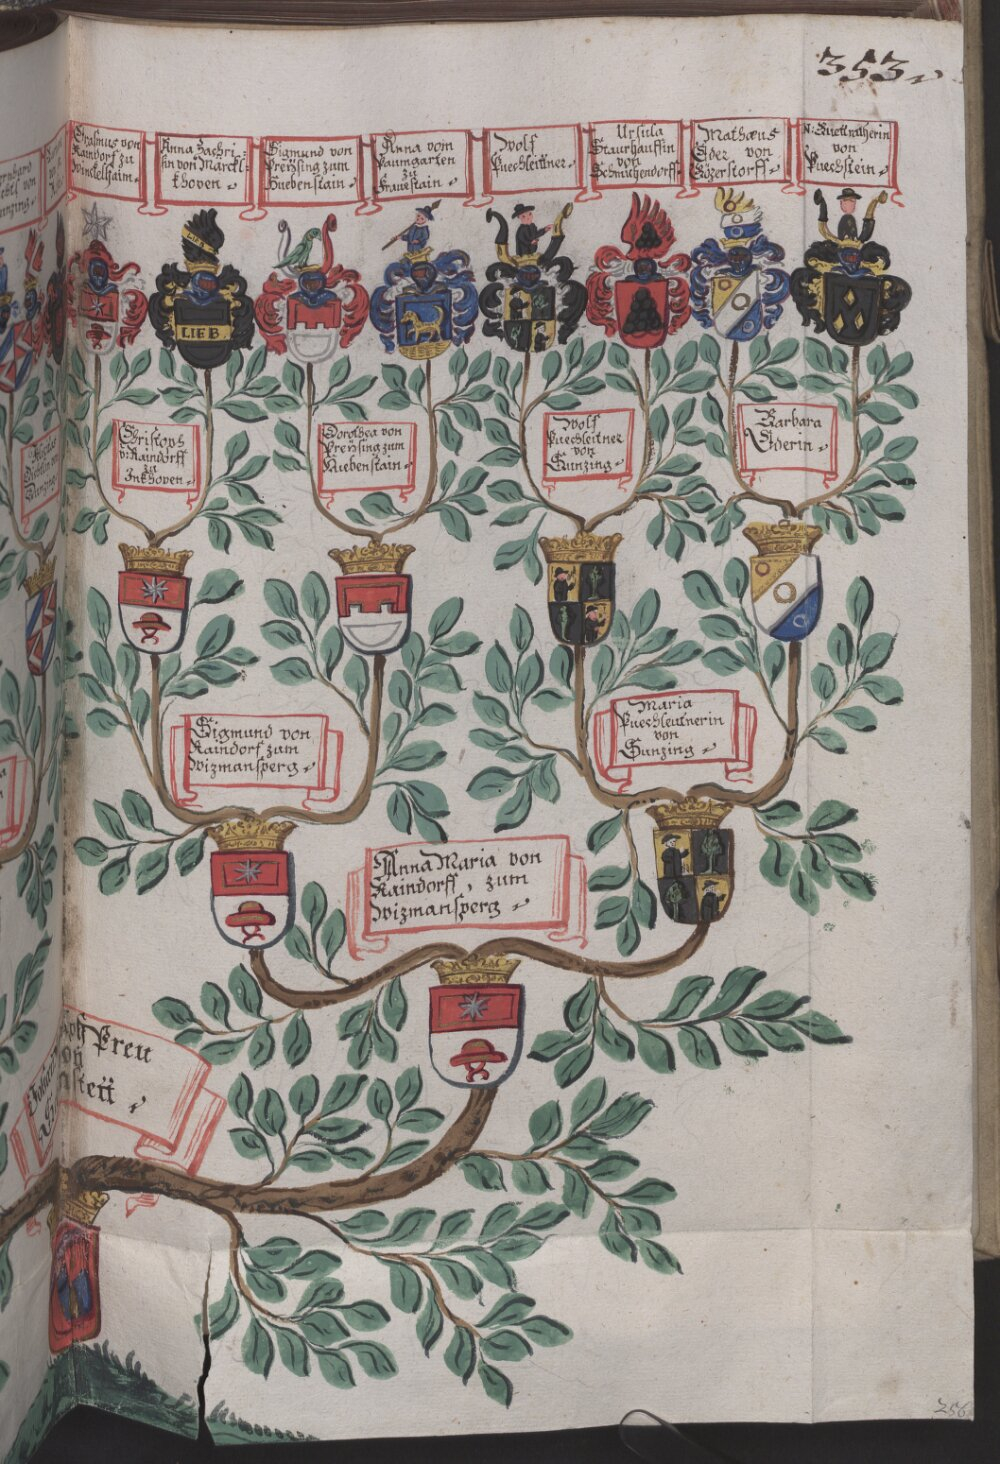 353
Erasmus von
Raindorf zu
Winckelhaim
Anna Zachri-
sin von Marckl-
khoven
Sigmund von
Preising zum
Huebenstain
Anna vom
Paumgarten
zu
Frauestain
Wolf
Puechleittner
Ursula
Staurhauffin
von
Schmuchendorff
Mathæus
Eder von
von
Puechstein
LIEB
LIEB
Christoph
v: Raindorff
zu
Inkhoven
Dorothea von
Preysing zum
Huebenstain
Wolf
Puechleitner
von
Sunzing
Barbara
Ederin
Sigmund von
Raindorf zum
Wizmansperg
Maria
Puechleutnerin
von
Sunzing
Anna Maria von
Raindorff, zum
Wizmansperg
Preu
256